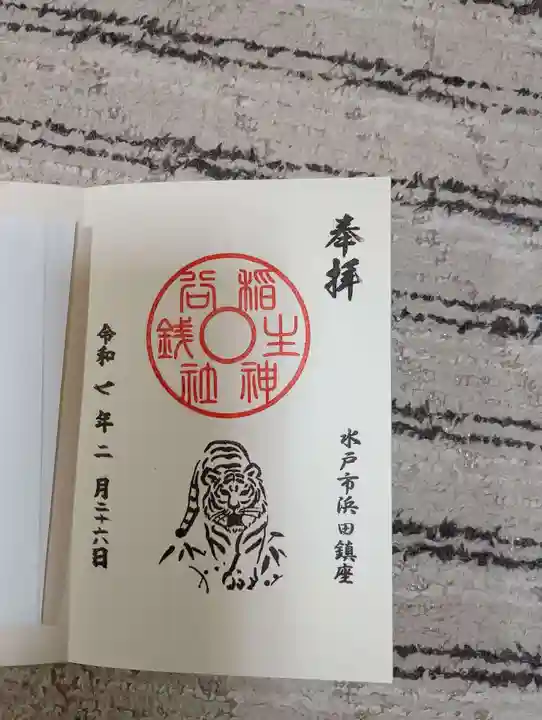 奉拝
水戸市浜田鎮座
銭谷稲生神社
令和七年二月二十六日